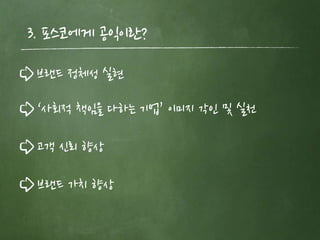 3. 포스코에게 공익이란?
브랜드 정체성 실현
‘사회적 책임을 다하는 기업’ 이미지 각인 및 실천
고객 신뢰 향상
브랜드 가치 향상